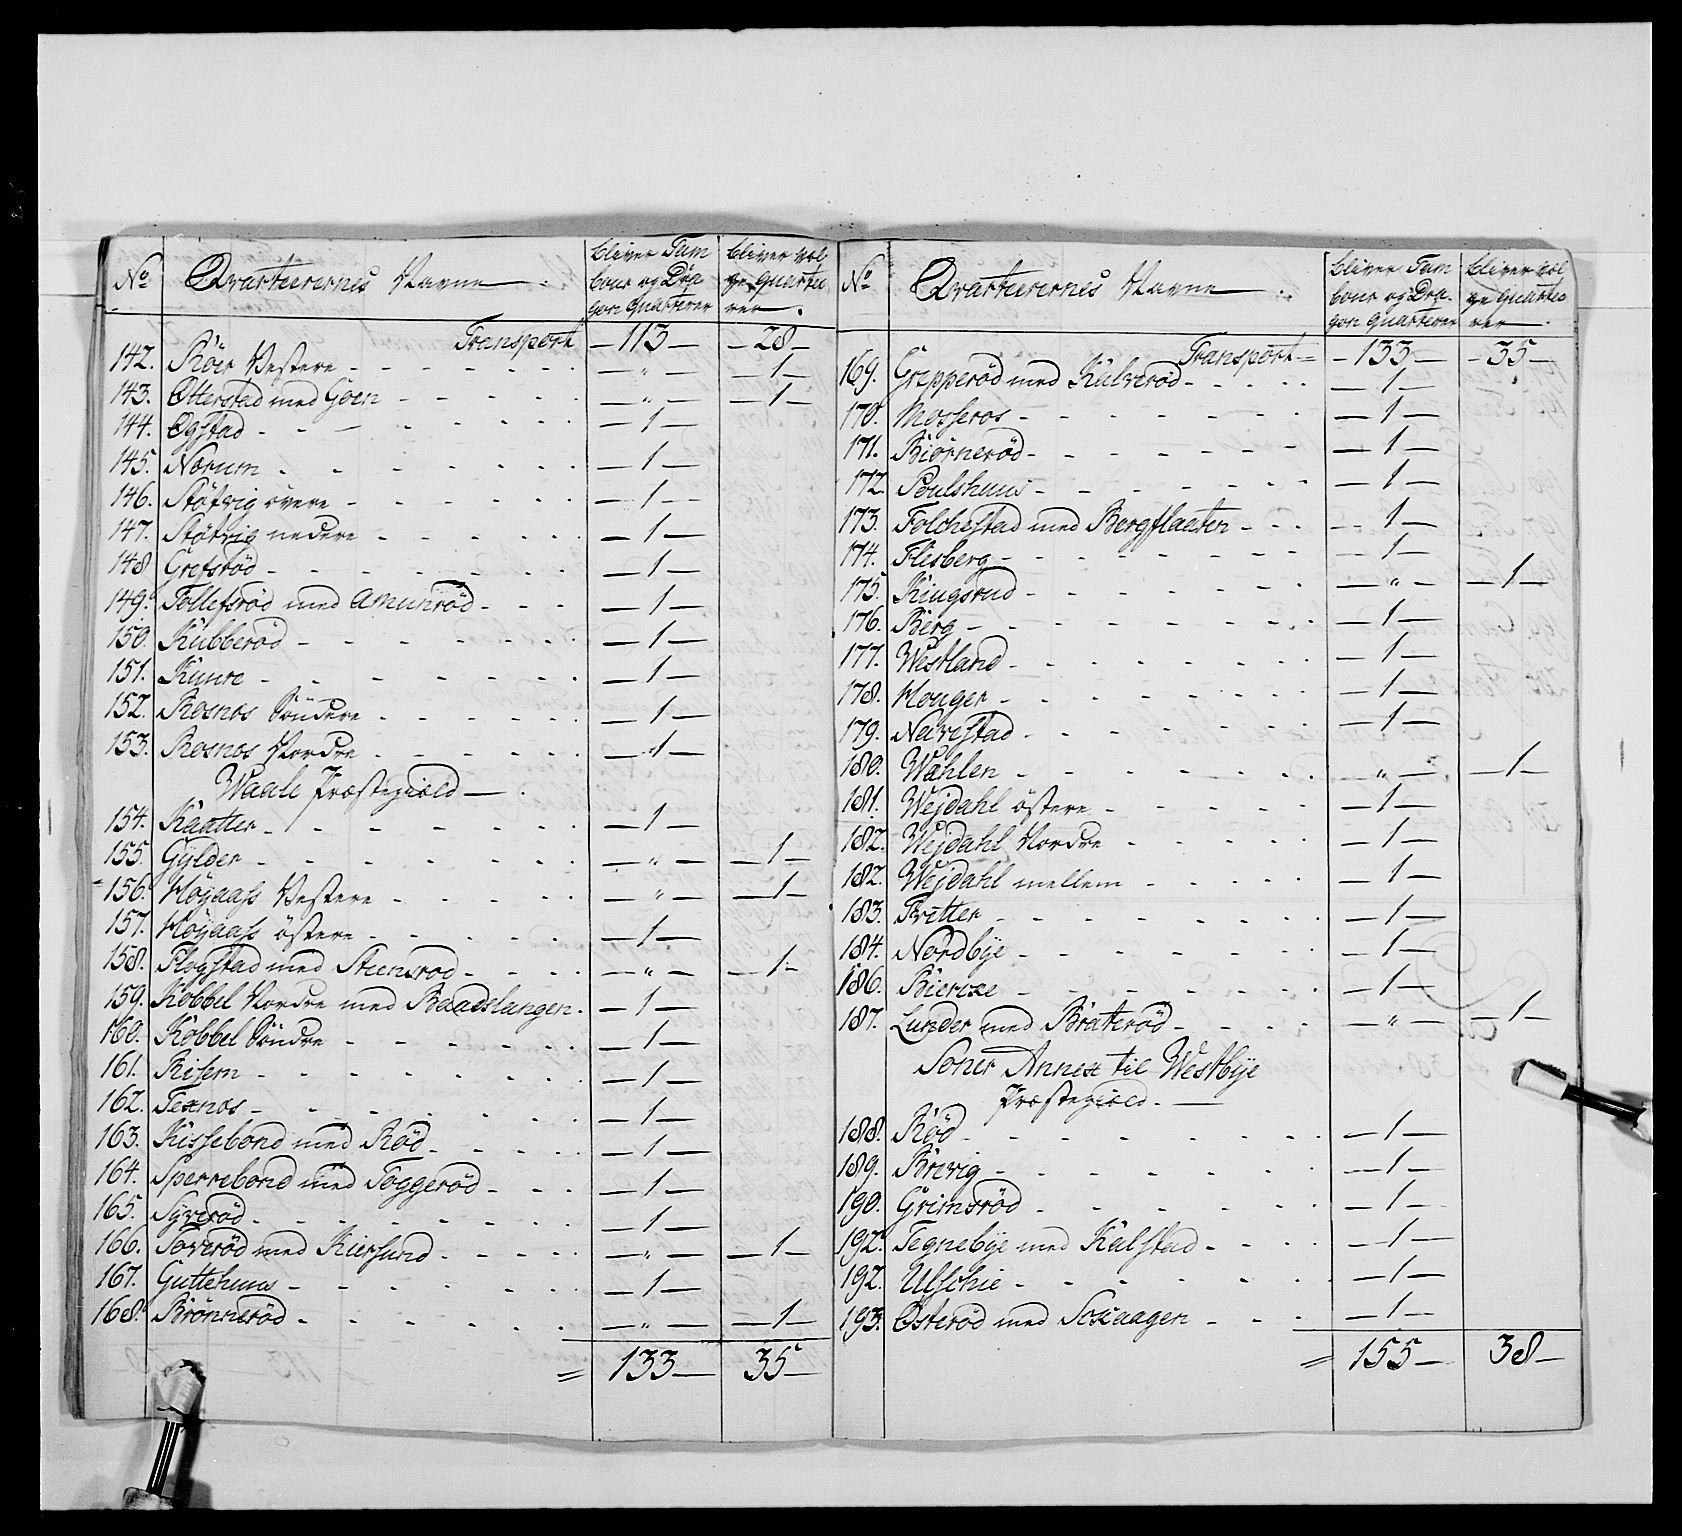 No
Qvarteerernes Navne
bliver Tam
bour og Dra
gon Quarterer
bliver vol
ge Quartee
rer
Transport — 113 — — 28 —
142. Röer Vestere — " — — 1 —
143. Otterstad med Goen — " — — 1 —
144. Ogstad — 1 —
145. Norum — 1 —
146. Stötvig övere — 1 —
147. Stötvig nedere — 1 —
148 Grefsröd — 1 —
149. Tollefsröd med Amunröd — 1 —
150. Kubberöd — 1 —
151. Kiure — 1 —
152. Rosnos Söndere — 1 —
153. Rosnos Nordre — 1 —
Waale Præstegield
154. Kaatter — 1 —
155. Gÿlder — " — — 1 —
156. Höyaas Vestere — " — — 1 —
157. Höyaas östere — 1 —
158. Flogstad med Steensrod — " — — 1 —
159. Kobbel Nordre med Baadslangen — 1 —
160. Kobbel Söndre — 1 —
161. Risem — 1 —
162. Texnos — 1 —
163. Kissebond med Röd — 1 —
164. Sperrebond med Toggeröd — 1 —
165. Syveröd — 1 —
166. Soveröd med Kiersund — " — — 1 —
167. Guttehuus — 1 —
168. Brönneröd — " — — 1 —
= 133 — 35 —
No
Qvarteerernes Navne
bliver Tam
bour og Dra-
gon Quarterer
bliver vol
ge Quartee
rer
Transport = — 133 — — 35 —
169. Grepperöd med Kalveröd — 1 —
170. Mosseros — 1 —
171. Biorneröd — 1 —
172. Poulshuus — 1 —
173. Folchestad med Bergflaeten — 1 —
174. Flesberg — 1 —
175. Kingsrud — " — — 1 —
176. Berg — 1 —
177. Westland — 1 —
178. Houger — 1 —
179. Navestad — 1 —
180. Wahlen — " — — 1 —
181. Wejdahl östere — 1 —
182. Wejdahl Nordre — 1 —
182. Wejdahl mellem — 1 —
183. Tritter — 1 —
184. Nordbye — 1 —
186. Biercke — 1 —
187. Lunder med Brateröd — " — — 1 —
Soner Annex til Westbye
Præstegield.
188. Röd — 1 —
189. Brevig — 1 —
190. Grimsröd — 1 —
192. Tegnebye med Kalstad — 1 —
192. Ulschie — 1 —
193. Osteröd med Soxaagen — 1 —
= 155 — 38 —